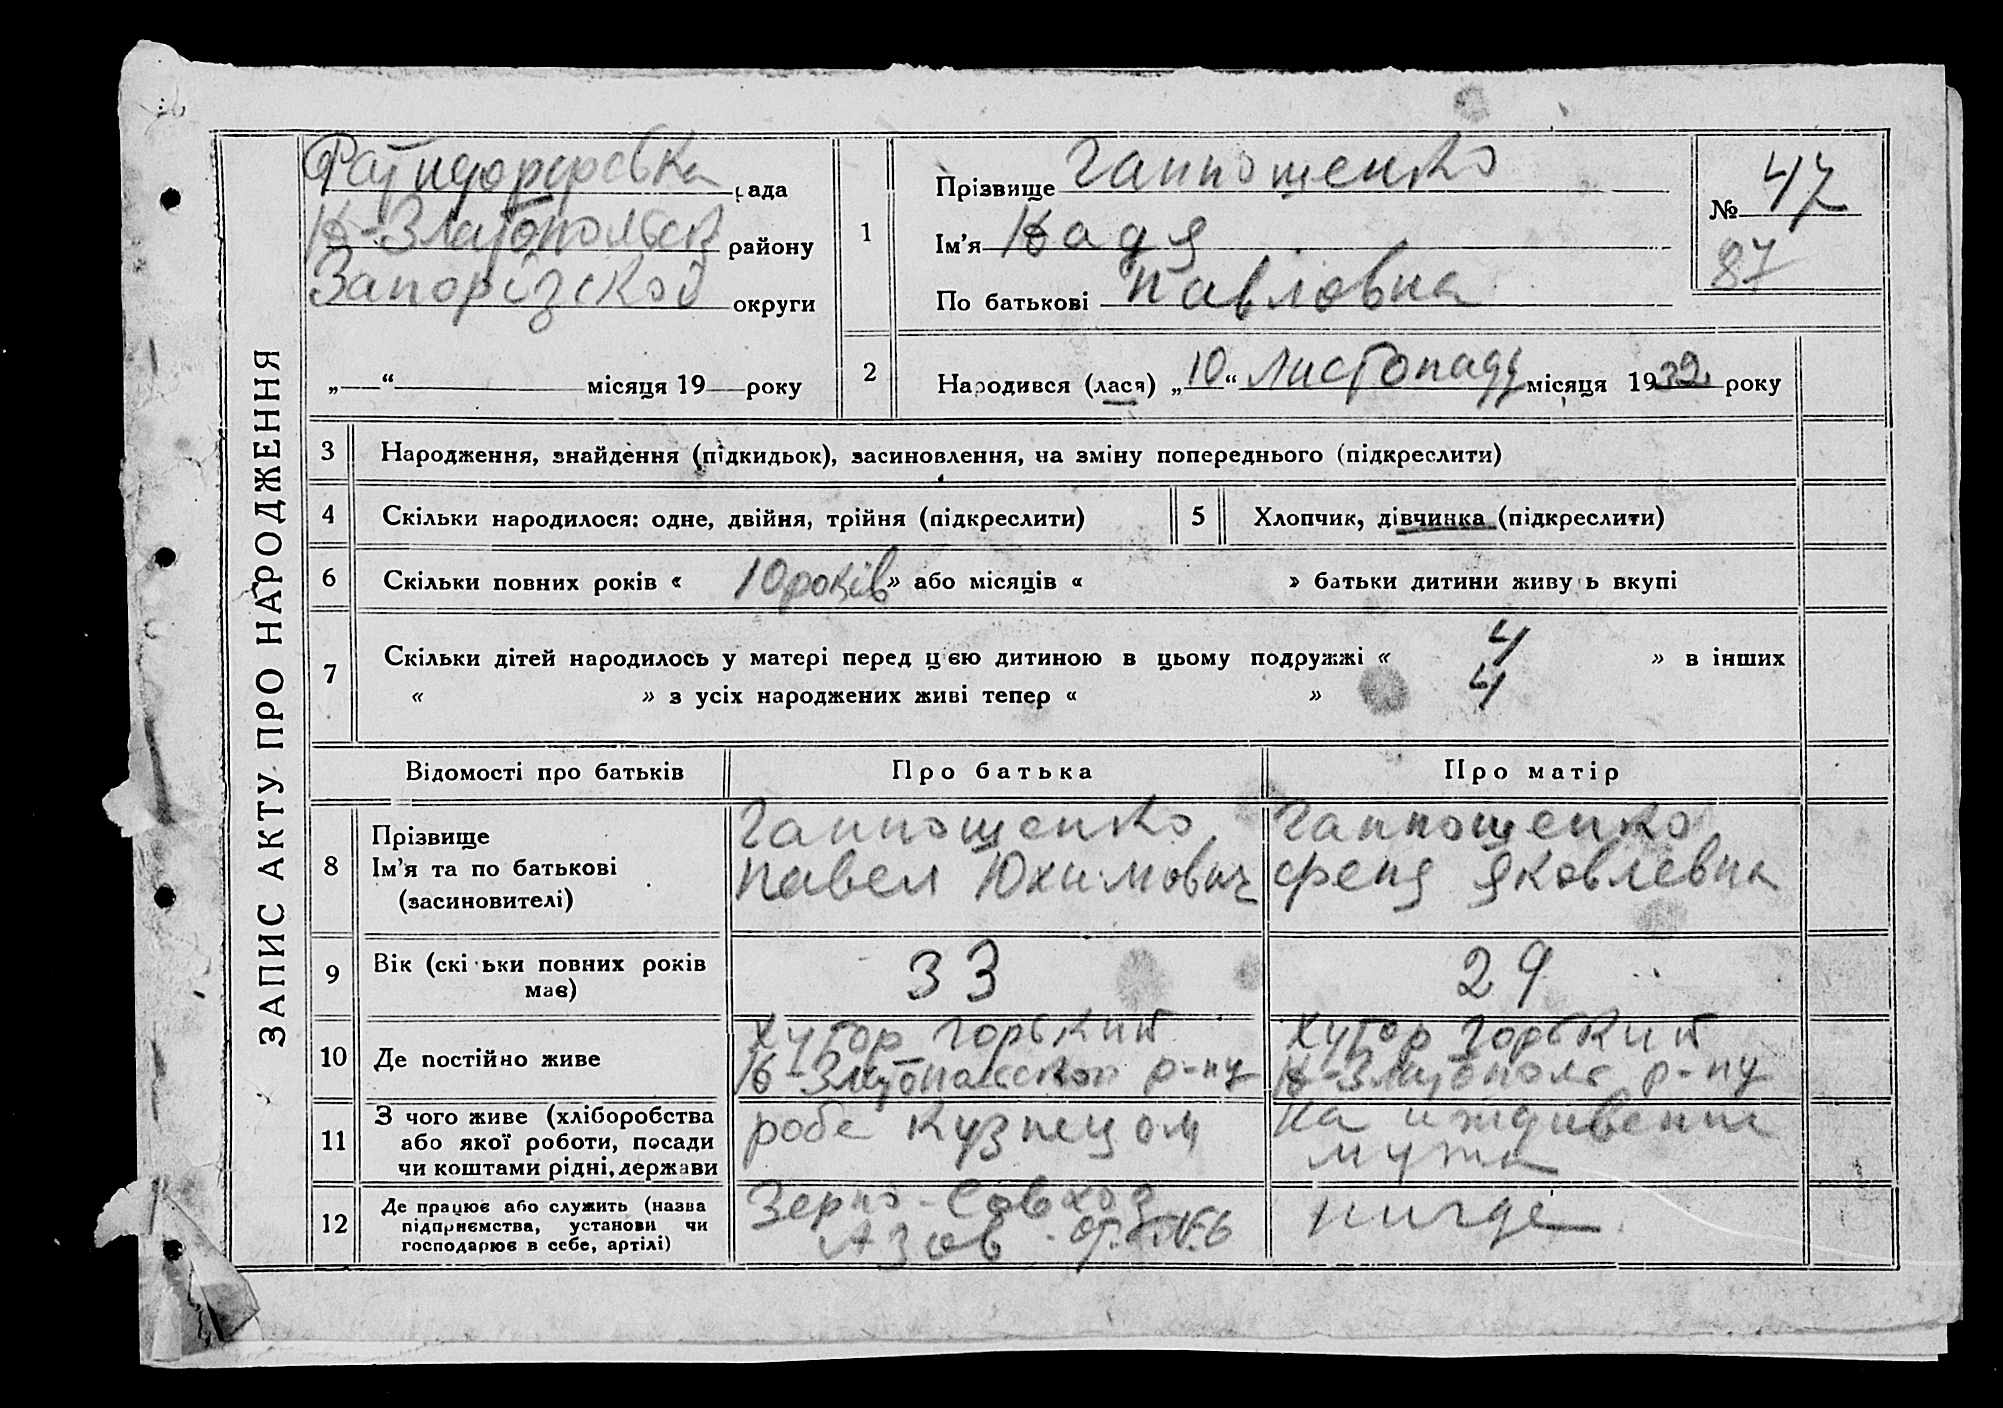 ЗАПИС АКТУ ПРО НАРОДЖЕННЯ
рада
Н-Златопольск району
Запорізскоі округи
„ “ місяця 19 року
1
Прізвище Ганнощенко
Ім’я Надя
По батькові Павловна
№ 47
87
2 Народився (лася) „10“ листопаду місяця 1932 року
3 Народження, знайдення (підкидьок), засиновлення, на зміну попереднього (підкреслити)
4 Скільки народилося: одне, двійня, трійня (підкреслити) 5 Хлопчик, дівчинка (підкреслити)
6 Скільки повних років « 10 років » або місяців « » батьки дитини живуть вкупі
7 Скільки дітей народилось у матері перед цією дитиною в цьому подружжі « 4 » в інших
« » з усіх народжених живі тепер « » 4
Відомості про батьків Про батька Про матір
8 Прізвище Ім’я та по батькові (засиновителі)
Ганнощенко Павел Юхимович
Ганнощенко Феня Яковлевна
9 Вік (скільки повних років має) 33 29
10 Де постійно живе
Хутор Горький Н-Златопольскои р-ну
Хутор Горький Н-Златополс р-ну
11 З чого живе (хліборобства або якої роботи, посади чи коштами рідні, держави
робе кузнецом
На иждивении мужа
12 Де працює або служить (назва підприємства, установи чи господарює в себе, артілі)
Зерно-Совхоз Азов
нигде